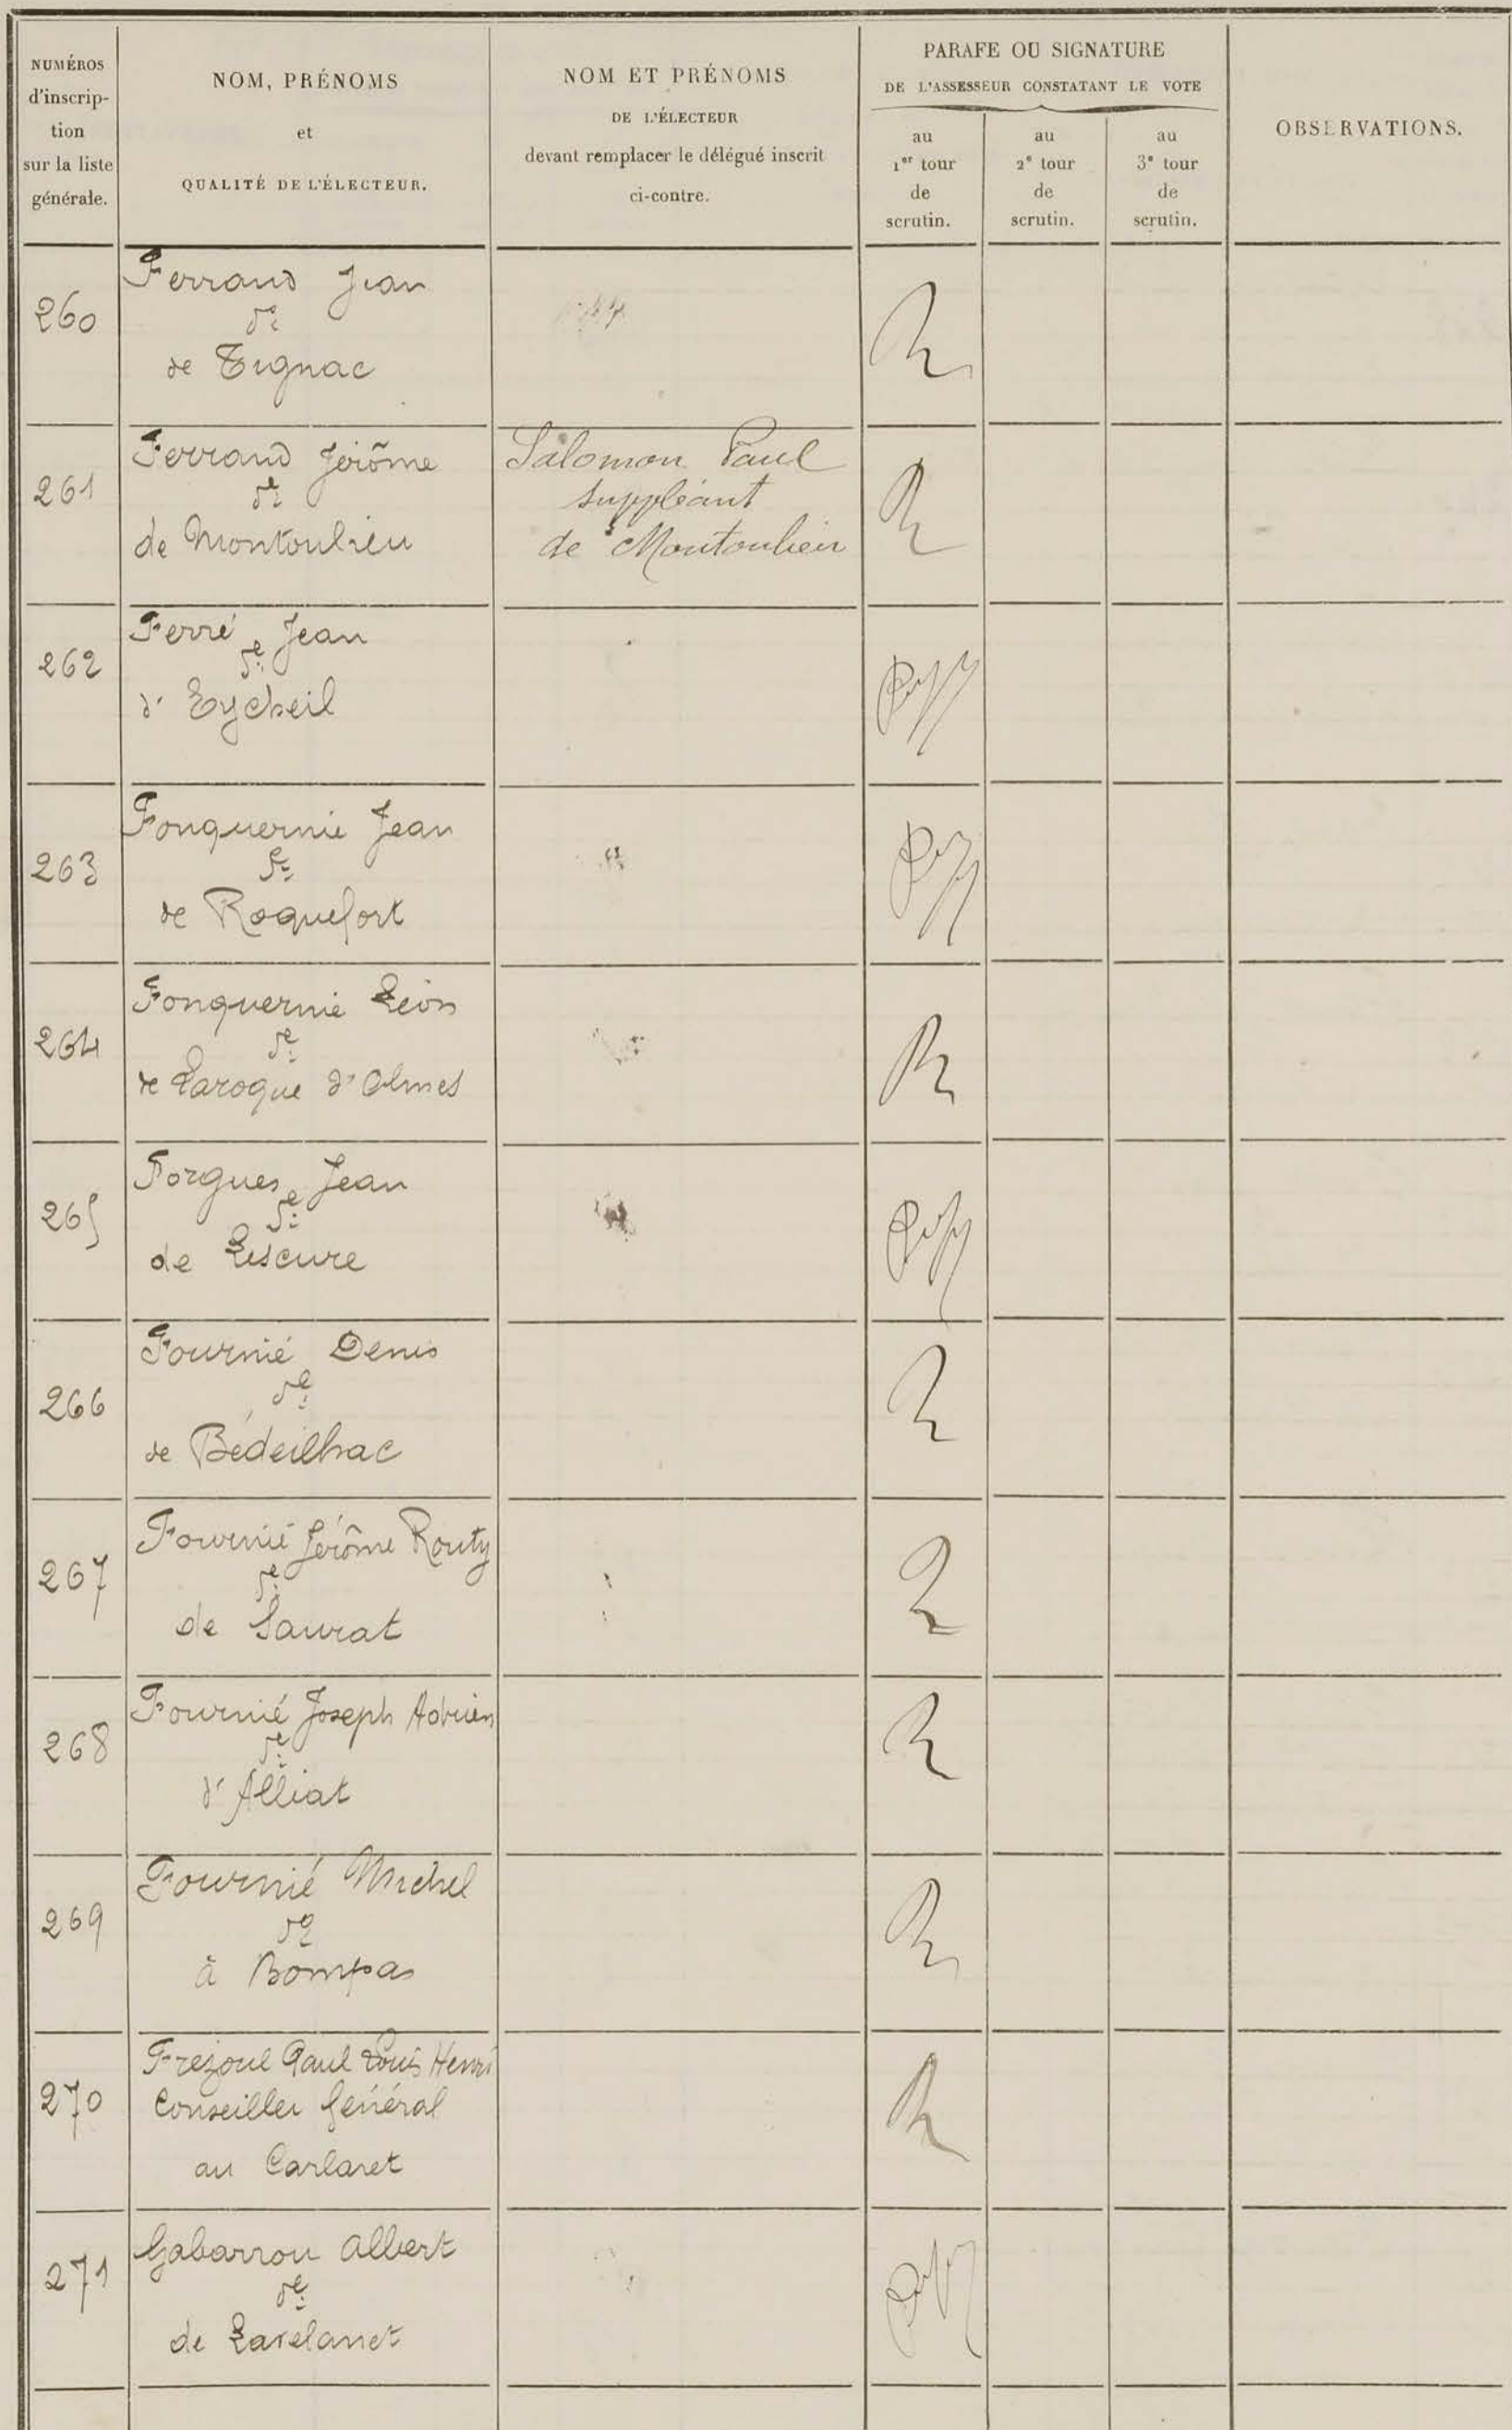 NUMÉROS
d'inscrip-
tion
sur la liste
générale.
NOM, PRÉNOMS
et
QUALITÉ DE L'ÉLECTEUR.
NOM ET PRÉNOMS
DE L'ÉLECTEUR
devant remplacer le délégué inscrit
ci-contre.
PARAFE OU SIGNATURE
DE L'ASSESSEUR CONSTATANT LE VOTE
au
1er tour
de
scrutin.
au
2e tour
de
scrutin.
au
3e tour
de
scrutin.
OBSERVATIONS.
260
Ferrand Jean
dé
de Tignac
261
Ferrand Jérôme
dé
de Montoulieu
Salomon Paul
suppléant
de Montoulieu
262
Ferré Jean
dé
d'Eycheil
263
Fonquernie Jean
dé
de Roquefort
264
Fonquernie Léon
dé
de Laroque d'Olmes
265
Forgues Jean
dé
de Lescure
266
Fournié Denis
dé
de Bédeilhac
267
Fournié Jérôme Routy
dé
de Saurat
268
Fournié Joseph Adrien
dé
d'Alliat
269
Fournié Michel
dé
à Bompas
270
Frezoul Paul Louis Henri
Conseiller Général
au Carlaret
271
Gabarrou Albert
dé
de Lavelanet